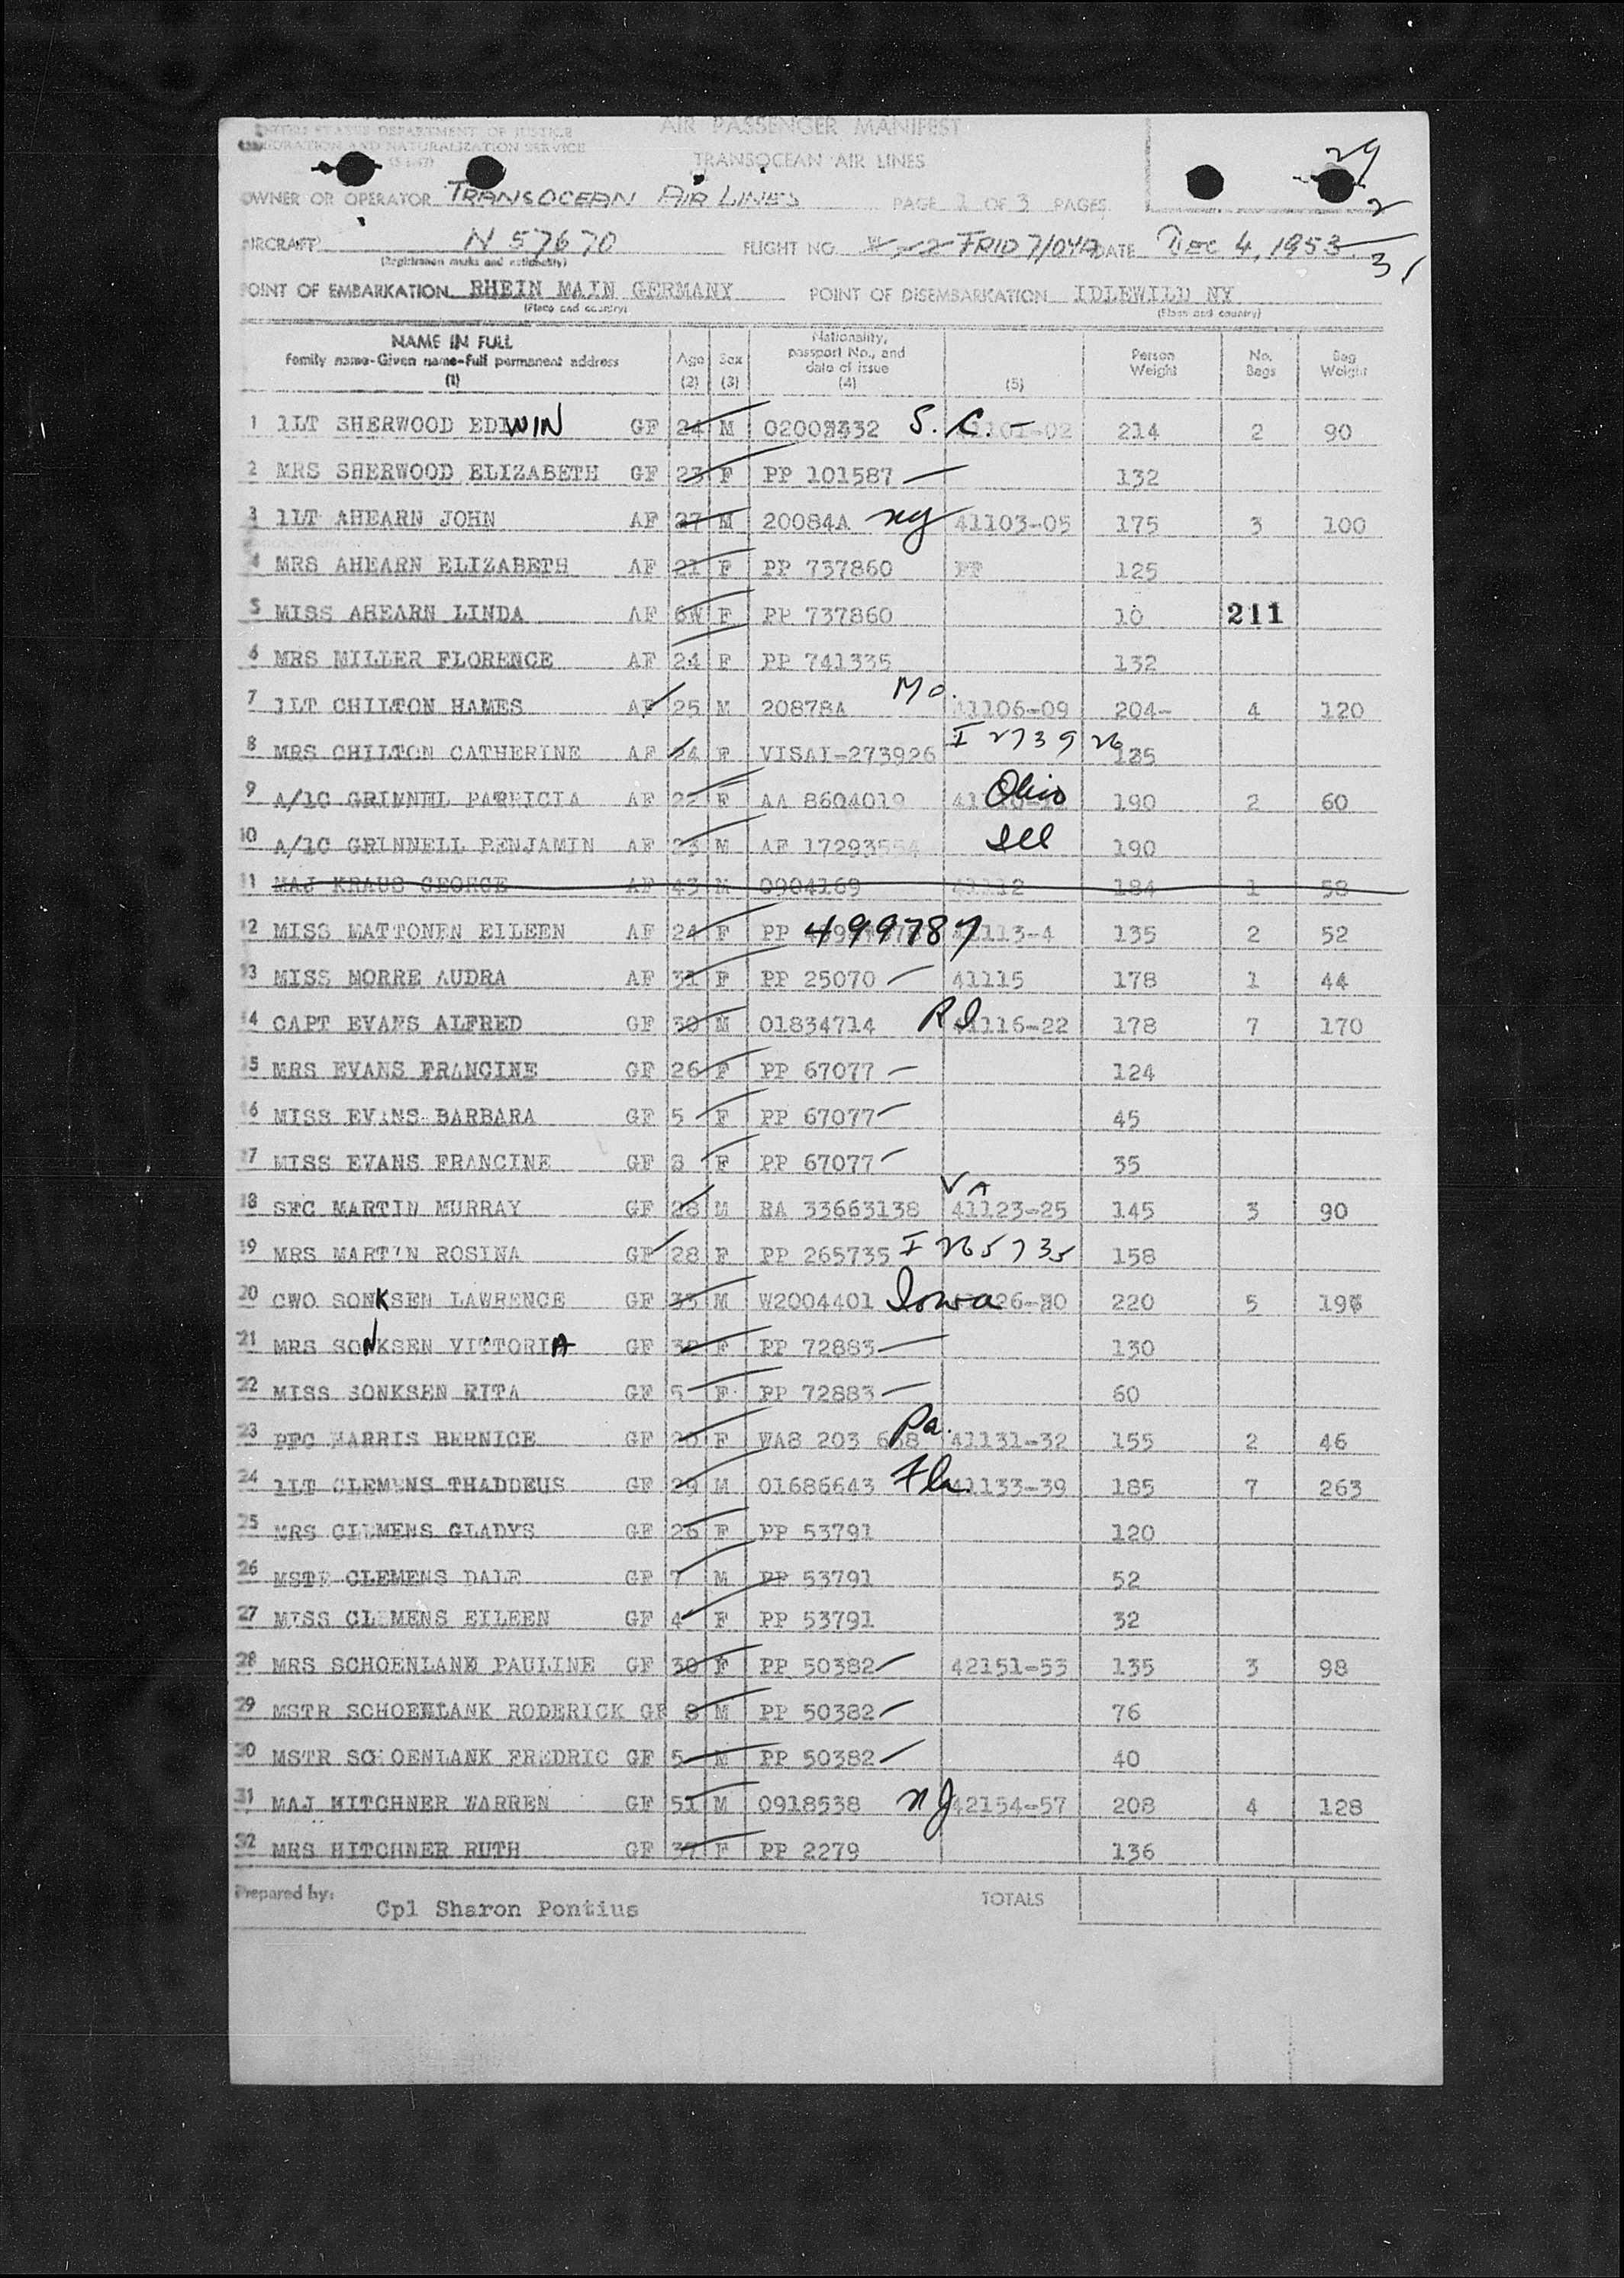 UNITED STATES DEPARTMENT OF JUSTICE
IMMIGRATION AND NATURALIZATION SERVICE
AIR PASSENGER MANIFEST
TRANSOCEAN AIR LINES
29
2
31
OWNER OR OPERATOR TRANSOCEAN AIR LINES PAGE 1 OF 3 PAGES
AIRCRAFT N 57670 FLIGHT NO. FRID 7/04A DATE DEC 4, 1953
(Registration marks and nationality)
POINT OF EMBARKATION RHEIN MAIN GERMANY POINT OF DISEMBARKATION IDLEWILD NY
(Place and country) (Place and country)
NAME IN FULL
Family name-Given name-Full permanent address
(1)
Age (2) Sex (3) Nationality, passport No., and date of issue (4) (5) Person Weight No. Bags Bag Weight
1 1LT SHERWOOD EDWIN GF 24 M S. C. - 41101-02 214 2 90
2 MRS SHERWOOD ELIZABETH GF 23 F PP 101587 132
3 1LT AHEARN JOHN AF 27 M 20084A ny 41103-05 175 3 100
4 MRS AHEARN ELIZABETH AF 21 F PP 737860 PP 125
5 MISS AHEARN LINDA AF 6W F PP 737860 10 211
6 MRS MILLER FLORENCE AF 24 F PP 741335 132
7 1LT CHILTON HAMES AF 25 M 20878A Mo. 41106-09 204- 4 120
8 MRS CHILTON CATHERINE AF 24 F VISAI-273926 I 273926 125
9 A/1C GRINNEL PATRICIA AF 22 F AA 8604019 Ohio 190 2 60
10 A/1C GRINNELL BENJAMIN AF 23 M AF 17293554 Ill 190
11 MAJ KRAUS GEORGE AF 43 M 0904169 41112 184 1 58
12 MISS MATTONEN EILEEN AF 24 F PP 499787 41113-4 135 2 52
13 MISS MORRE AUDRA AF 31 F PP 25070 41115 178 1 44
14 CAPT EVANS ALFRED GF 30 M 01834714 RI 41116-22 178 7 170
15 MRS EVANS FRANCINE GF 26 F PP 67077 124
16 MISS EVANS BARBARA GF 5 F PP 67077 45
17 MISS EVANS FRANCINE GF 3 F PP 67077 35
18 SFC MARTIN MURRAY GF 28 M RA 33663138 VA 41123-25 145 3 90
19 MRS MARTIN ROSINA GF 28 F PP 265735 I 265735 158
20 CWO SONKSEN LAWRENCE GF 35 M W2004401 Iowa 41126-30 220 5
21 MRS SONKSEN VITTORIA GF 38 F PP 72883 130
22 MISS SONKSEN RITA GF 5 F PP 72883 60
23 PFC HARRIS BERNICE GF 20 F WA8 203 Pa. 41131-32 155 2 46
24 1LT CLEMENS THADDEUS GF 29 M 01686643 Fla. 41133-39 185 7 263
25 MRS CLEMENS GLADYS GF 26 F PP 53791 120
26 MSTR CLEMENS DALE GF 7 M PP 53791 52
27 MISS CLEMENS EILEEN GF 4 F PP 53791 32
28 MRS SCHOENLANK PAULINE GF 30 F PP 50382 42151-53 135 3 98
29 MSTR SCHOENLANK RODERICK GF 8 M PP 50382 76
30 MSTR SCHOENLANK FREDRIC GF 5 M PP 50382 40
31 MAJ HITCHNER WARREN GF 51 M 0918538 NJ 42154-57 208 4 128
32 MRS HITCHNER RUTH GF 37 F PP 2279 136
Prepared by: Cpl Sharon Pontius TOTALS